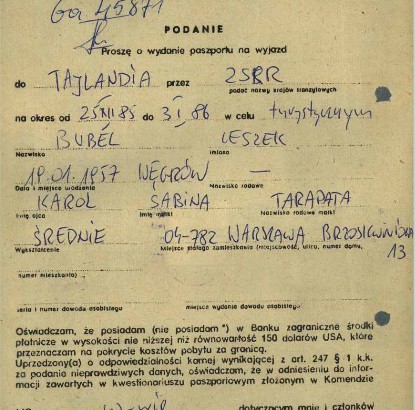 Ga 45871
PODANIE
Proszę o wydanie paszportu na wyjazd
do TAJLANDIA przez ZSRR
podać nazwy krajów tranzytowych
na okres od 25 XII 85 do 3 I 86 w celu turystycznym
BUBEL LESZEK
Nazwisko Imiona
19.01.1957 WĘGRÓW —
Data i miejsce urodzenia Nazwisko rodowe
KAROL SABINA TARAPATA
Imię ojca Imię matki Nazwisko rodowe matki
ŚREDNIE 04-782 WARSZAWA
Wykształcenie Miejsce stałego zamieszkania (miejscowość, ulica, numer domu,
13
numer mieszkania)
seria i numer dowodu osobistego miejsce wydania dowodu osobistego
Oświadczam, że posiadam (nie posiadam *) w Banku zagraniczne środki
płatnicze w wysokości nie niższej niż równowartość 150 dolarów USA, które
przeznaczam na pokrycie kosztów pobytu za granicą.
Uprzedzony(a) o odpowiedzialności karnej wynikającej z art. 247 § 1 k.k.
za podanie nieprawdziwych danych, oświadczam, że w odniesieniu do infor-
macji zawartych w kwestionariuszu paszportowym złożonym w Komendzie
dotyczącym mnie i członków